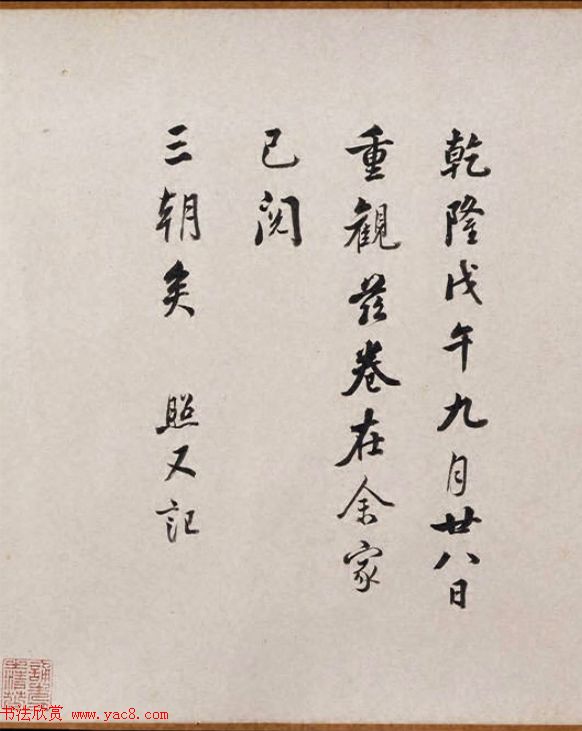 乾隆戊午九月廿八日
重觀茲卷在余家
已閱
三朝矣 照又記
书法欣赏 www.yac8.com